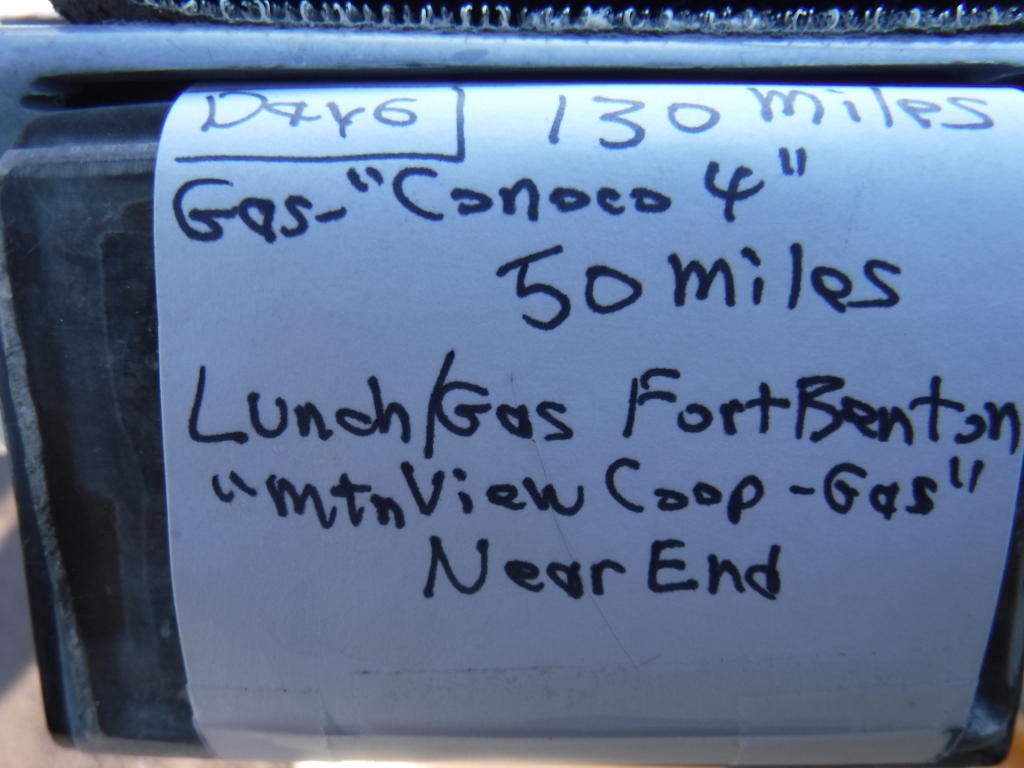 Day 6 130 miles
Gas- "Conoco 4"
50 miles
Lunch/Gas Fort Benton
"Mtn View Coop - Gas"
Near End